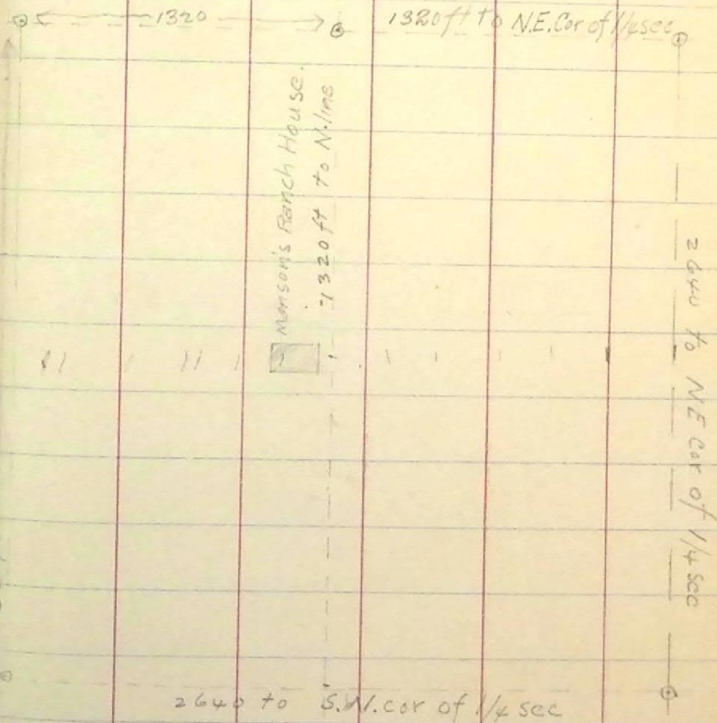 1320
1320 ft to N.E. Cor of 1/4 sec
Monson's Ranch House.
1320 ft to N. line
2640 to NE cor of 1/4 sec
2640 to S.W. cor of 1/4 sec